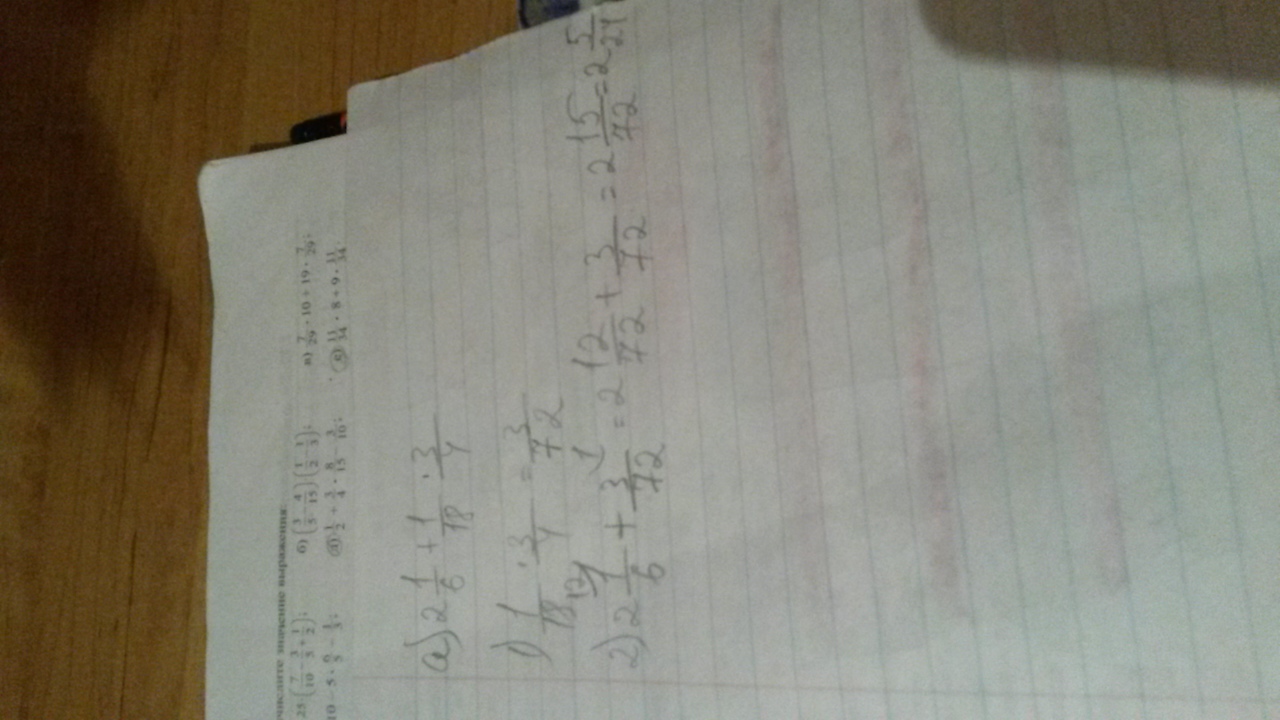 числите значение выражения:
25 · (7/10 − 3/5 + 1/2); б) (3/5 − 4/15)(1/2 − 1/3); в) 7/29 · 10 + 19 · 7/29;
1/2 + 3/4 · 8/15 − 3/16; 11/34 · 8 + 9 · 11/34.
а) 2 1/6 + 1/18 · 3/4
1) 1/18 · 3/4 = 3/72
2) 2 1/6 + 3/72 = 2 12/72 + 3/72 = 2 15/72 = 2 5/24